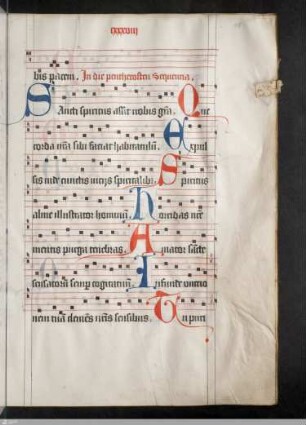 lxxxviii
bis pacem. In die penthecostes Sequentia.
Sancti spiritus assit nobis gra. Que
corda nra sibi faciat habitaculu. Expul
sis inde cunctis vicijs spiritalibus. Spiritus
alme illustrator hominu. Horridas nre
mentis purga tenebras. Amator sancte
sensatoru semp cogitatuu. Infunde unctio
nem tua clemes nris sensibus. Tu puri